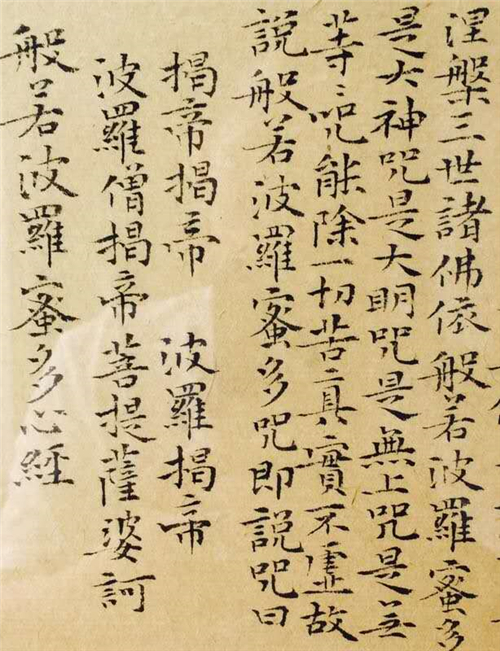 涅槃三世諸佛依般若波羅蜜多
是大神咒是大明咒是無上咒是无
等〻咒能除一切苦真實不虛故
說般若波羅蜜多咒即說咒曰
揭帝揭帝　波羅揭帝
波羅僧揭帝菩提薩婆訶
般若波羅蜜多心經